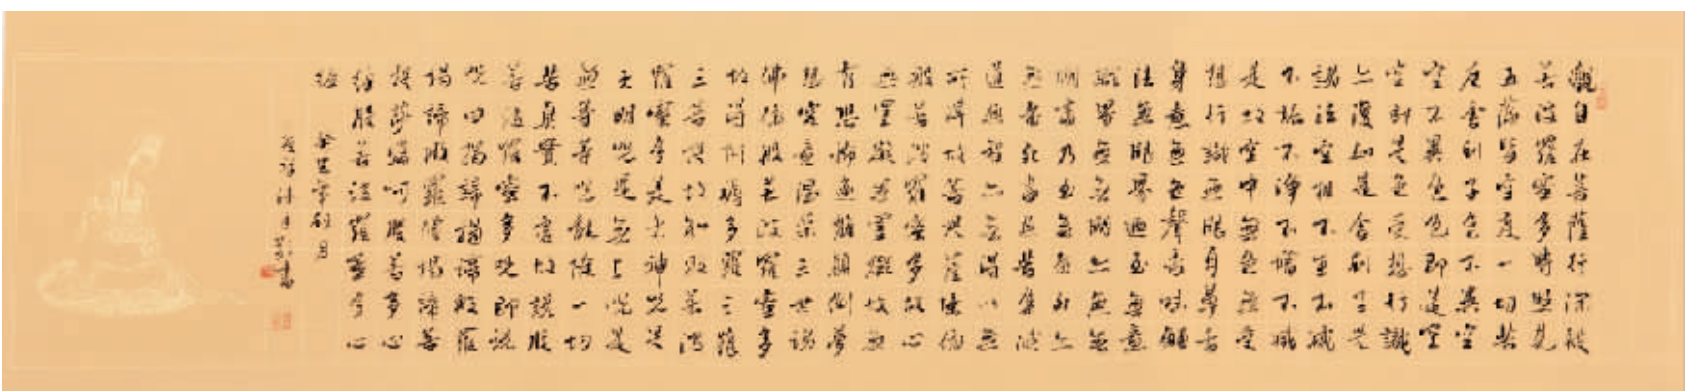 觀自在菩薩行深般
若波羅蜜多時照見
五蘊皆空度一切苦
厄舍利子色不異空
空不異色色即是空
空即是色受想行識
亦復如是舍利子是
諸法空相不生不滅
不垢不淨不增不減
是故空中無色無受
想行識無眼耳鼻舌
身意無色聲香味觸
法無眼界迺至無意
識界無無明亦無無
明盡乃至無老死亦
無老死盡無苦集滅
道無智亦無得以無
所得故菩提薩埵依
般若波羅蜜多故心
無罣礙無罣礙故無
有恐怖遠離顛倒夢
想究竟涅槃三世諸
佛依般若波羅蜜多
故得阿耨多羅三藐
三菩提故知般若波
羅蜜多是大神咒是
大明咒是無上咒是
無等等咒能除一切
苦真實不虛故說般
若波羅蜜多咒即說
咒曰揭諦揭諦般羅
揭諦般羅僧揭諦菩
提薩呵多心
經般若波羅蜜多心
經
年秋月
書